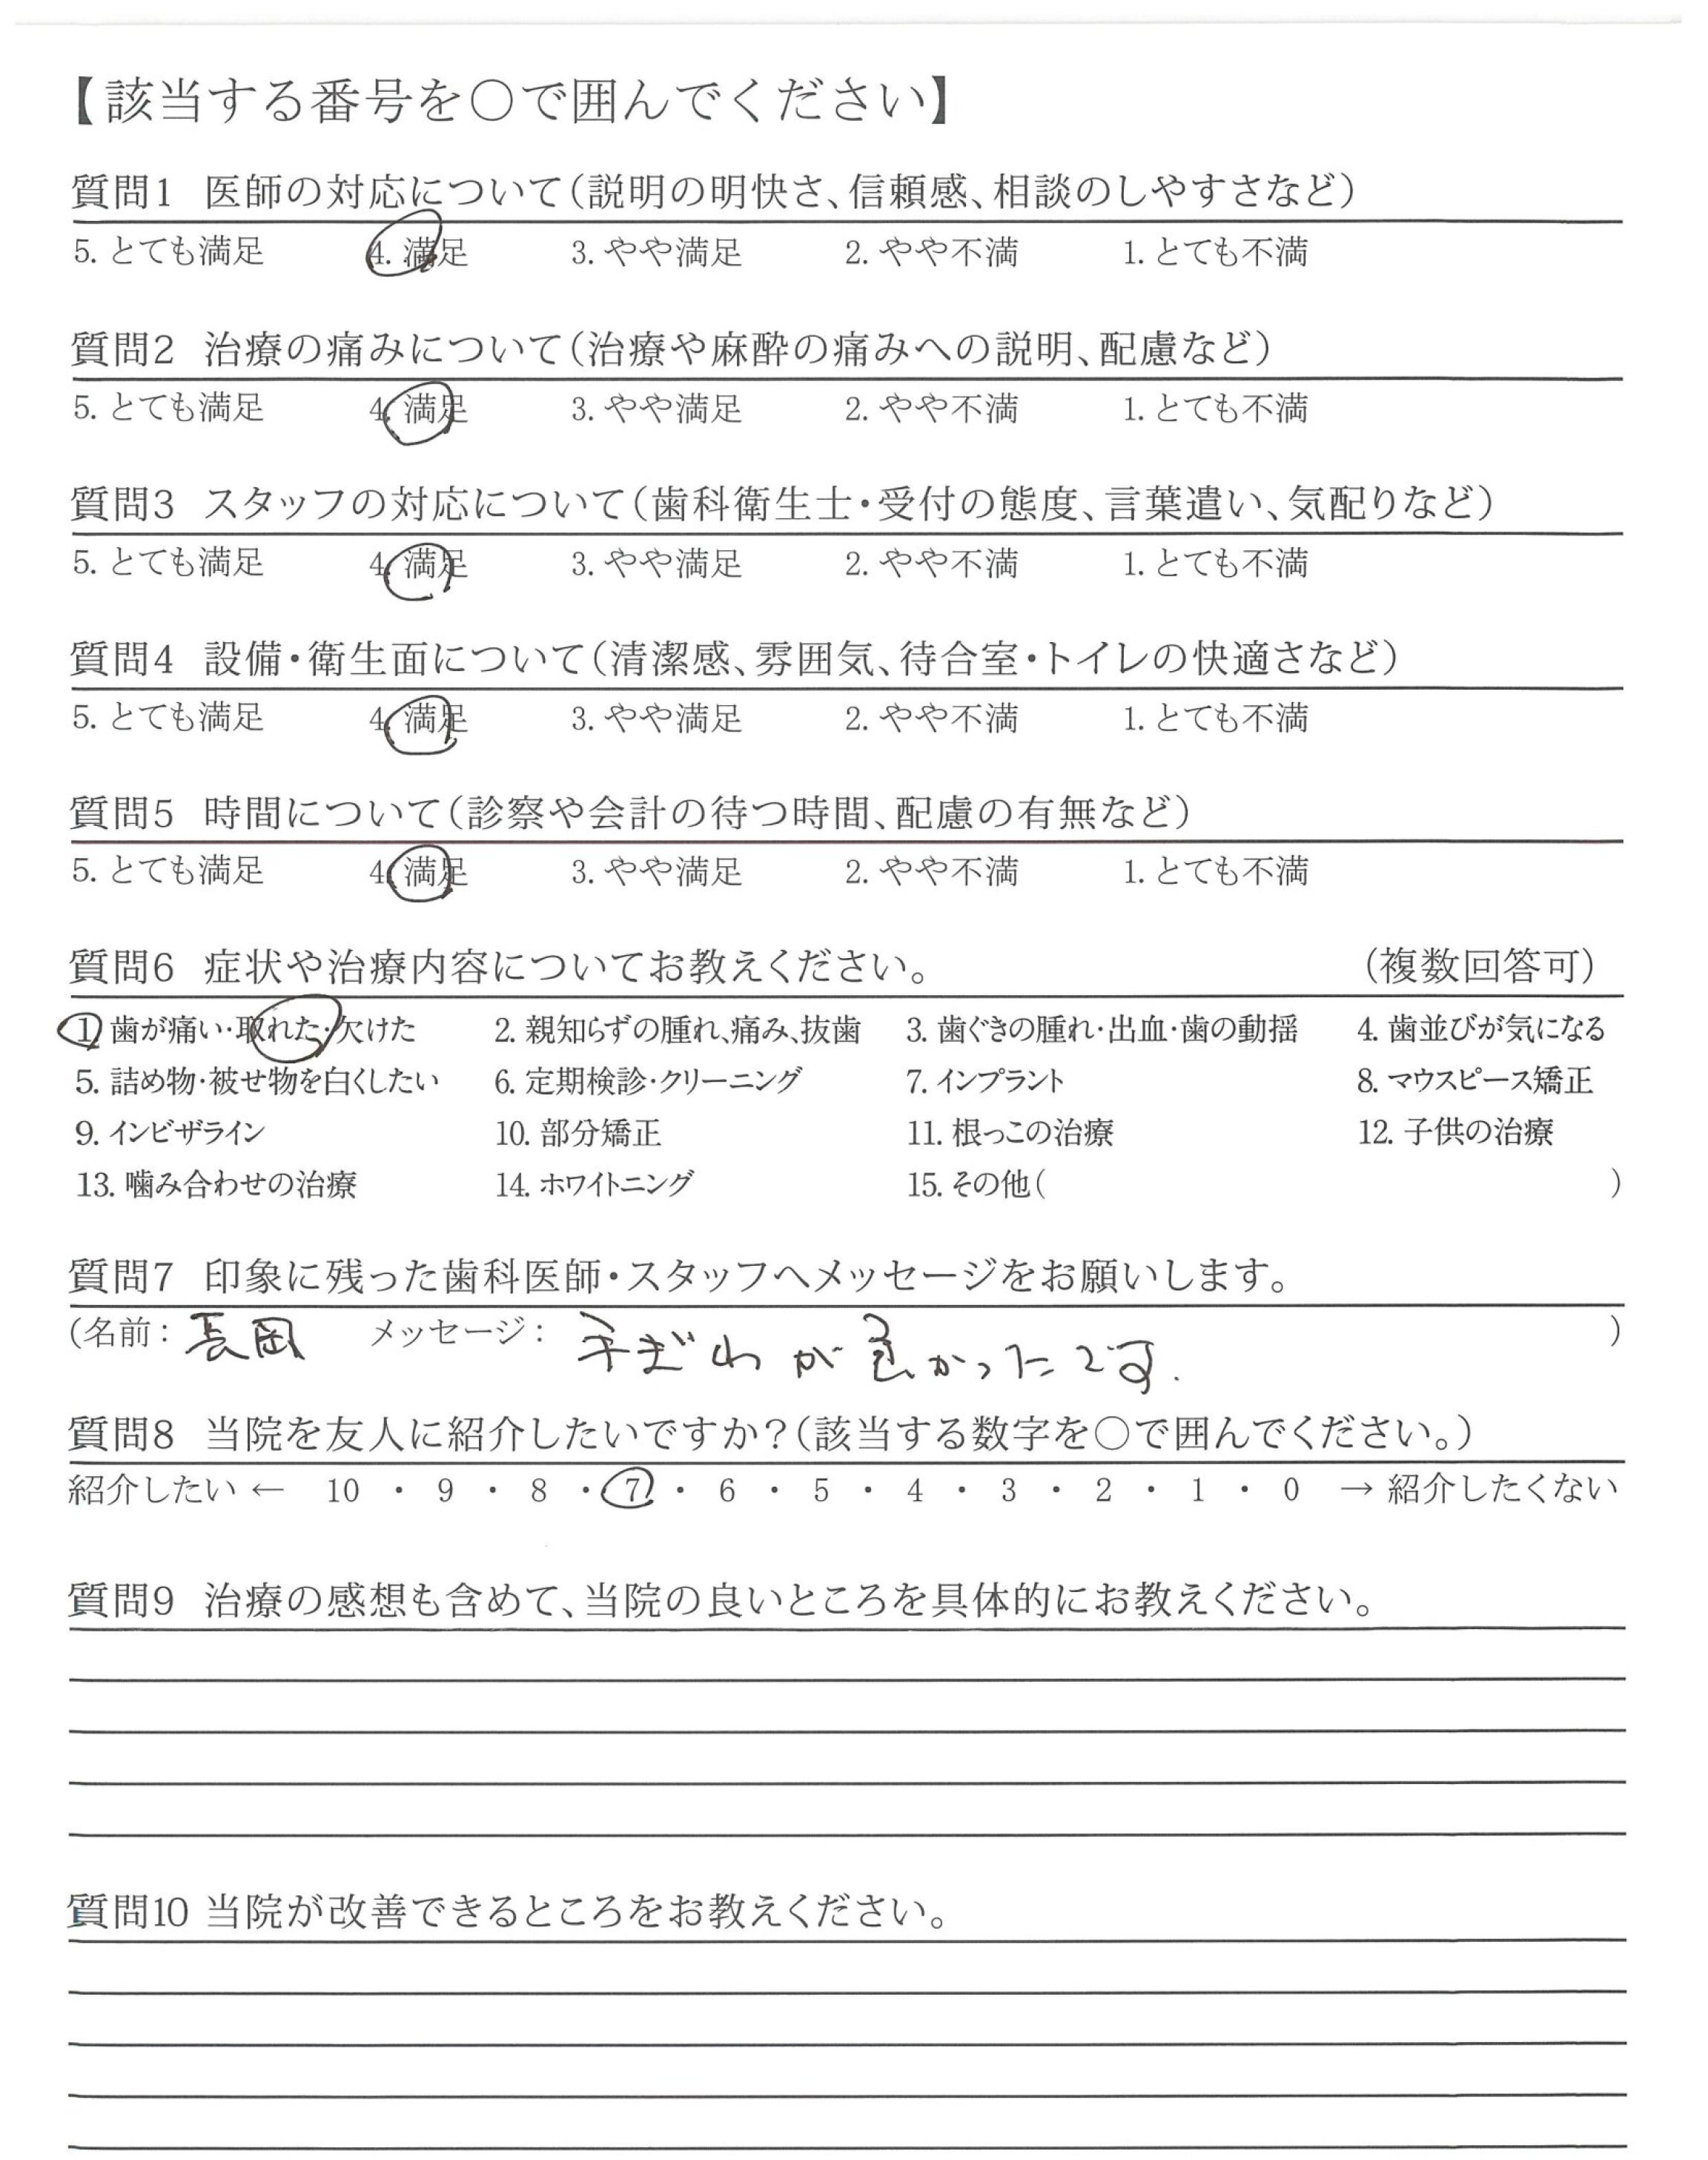 【該当する番号を○で囲んでください】
質問1 医師の対応について(説明の明快さ、信頼感、相談のしやすさなど)
5. とても満足 4. 満足 3. やや満足 2. やや不満 1. とても不満
質問2 治療の痛みについて(治療や麻酔の痛みへの説明、配慮など)
5. とても満足 4. 満足 3. やや満足 2. やや不満 1. とても不満
質問3 スタッフの対応について(歯科衛生士・受付の態度、言葉遣い、気配りなど)
5. とても満足 4. 満足 3. やや満足 2. やや不満 1. とても不満
質問4 設備・衛生面について(清潔感、雰囲気、待合室・トイレの快適さなど)
5. とても満足 4. 満足 3. やや満足 2. やや不満 1. とても不満
質問5 時間について(診察や会計の待つ時間、配慮の有無など)
5. とても満足 4. 満足 3. やや満足 2. やや不満 1. とても不満
質問6 症状や治療内容についてお教えください。 (複数回答可)
1. 歯が痛い・取れた・欠けた 2. 親知らずの腫れ、痛み、抜歯 3. 歯ぐきの腫れ・出血・歯の動揺 4. 歯並びが気になる
5. 詰め物・被せ物を白くしたい 6. 定期検診・クリーニング 7. インプラント 8. マウスピース矯正
9. インビザライン 10. 部分矯正 11. 根っこの治療 12. 子供の治療
13. 噛み合わせの治療 14. ホワイトニング 15. その他( )
質問7 印象に残った歯科医師・スタッフへメッセージをお願いします。
(名前: 長岡 メッセージ: 手ぎわが良かったです. )
質問8 当院を友人に紹介したいですか?(該当する数字を○で囲んでください。)
紹介したい ← 10 ・ 9 ・ 8 ・ 7 ・ 6 ・ 5 ・ 4 ・ 3 ・ 2 ・ 1 ・ 0 → 紹介したくない
質問9 治療の感想も含めて、当院の良いところを具体的にお教えください。
質問10 当院が改善できるところをお教えください。